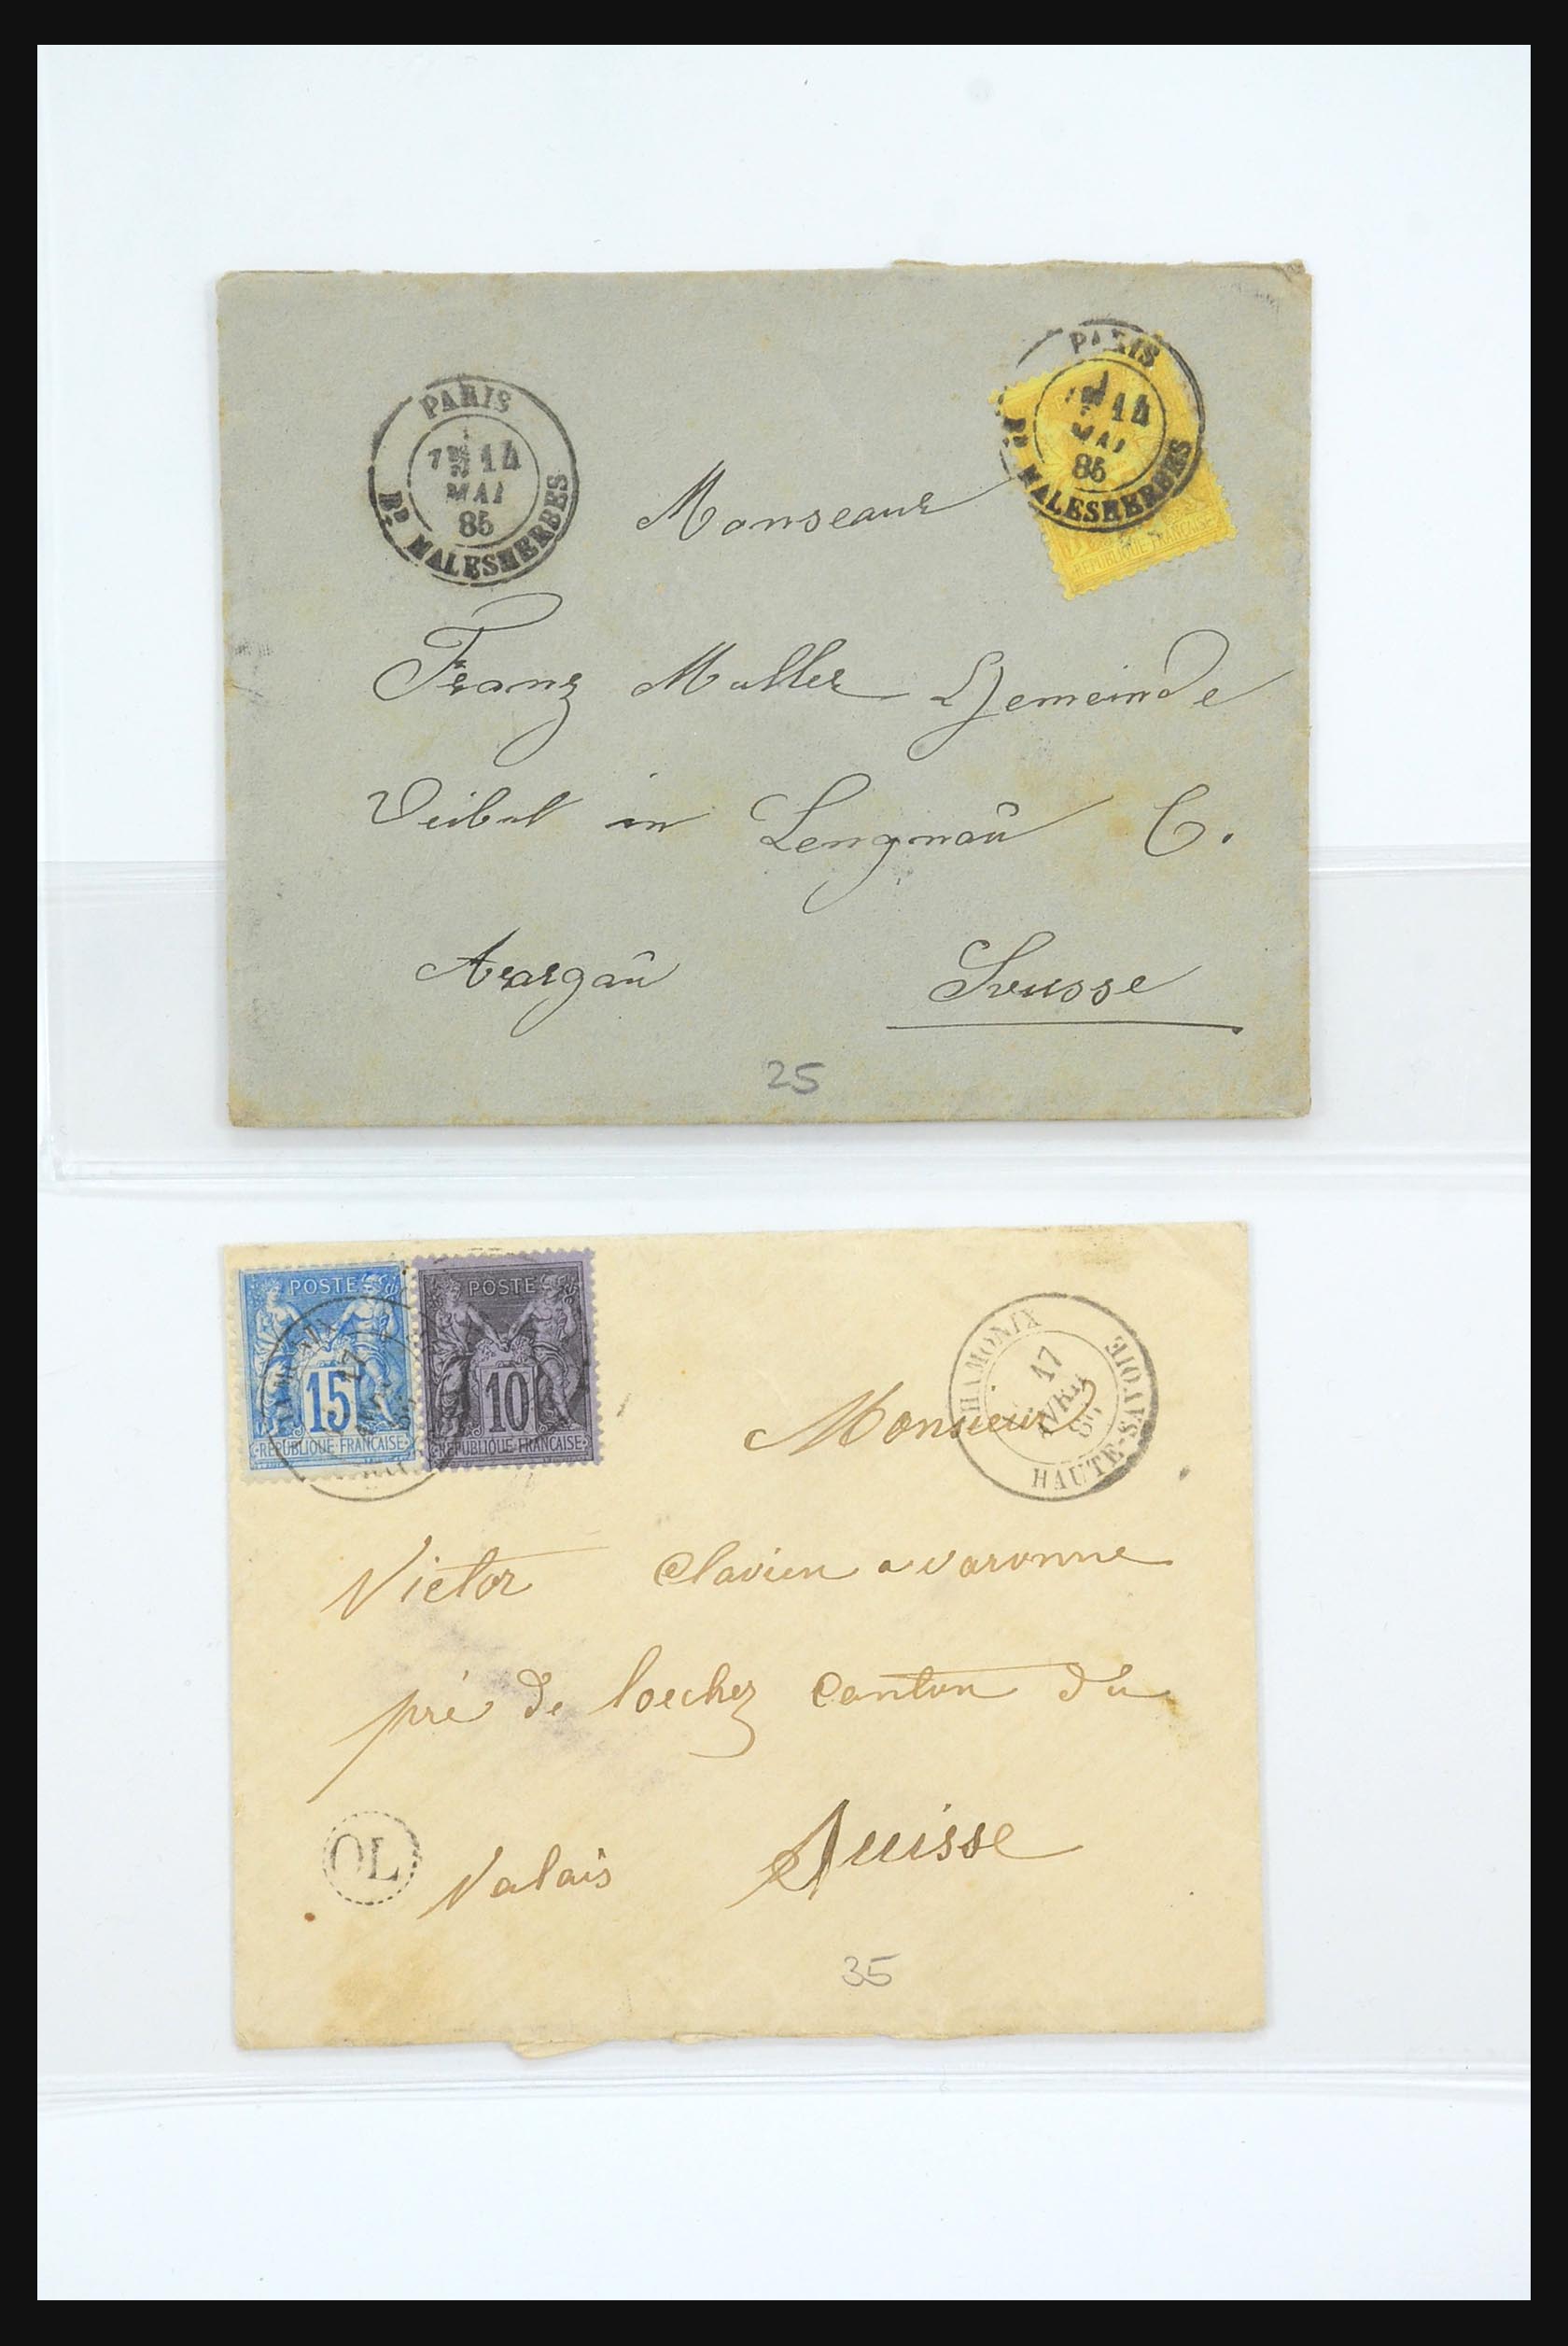 PARIS
7E 14
MAI
85
BD MALESHERBES
PARIS
7E 14
MAI
85
BD MALESHERBES
REPUBLIQUE FRANCAISE
Monseaur
Franz Muller Gemeinde
Veibel in Lengnaû C.
Arargaû Sveusse
25
POSTE
15
REPUBLIQUE FRANCAISE
POSTE
10
REPUBLIQUE FRANCAISE
17
CHAMONIX
17
AVRIL
85
HAUTE-SAVOIE
Monsieur
Victor Clavien a varonne
pré de loechez Canton du
Valais Suisse
OL
35